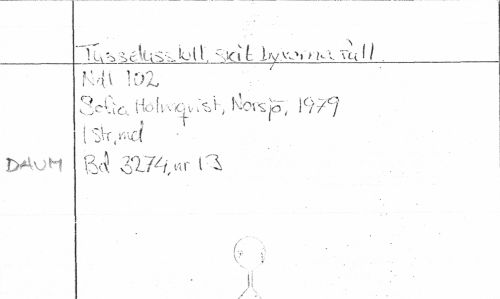 Tusselusslull, skit byxorna full
Ndl 102
Sofia Holmqvist, Norsjö, 1979
1 str, md
DAUM Bd 3274, nr 13